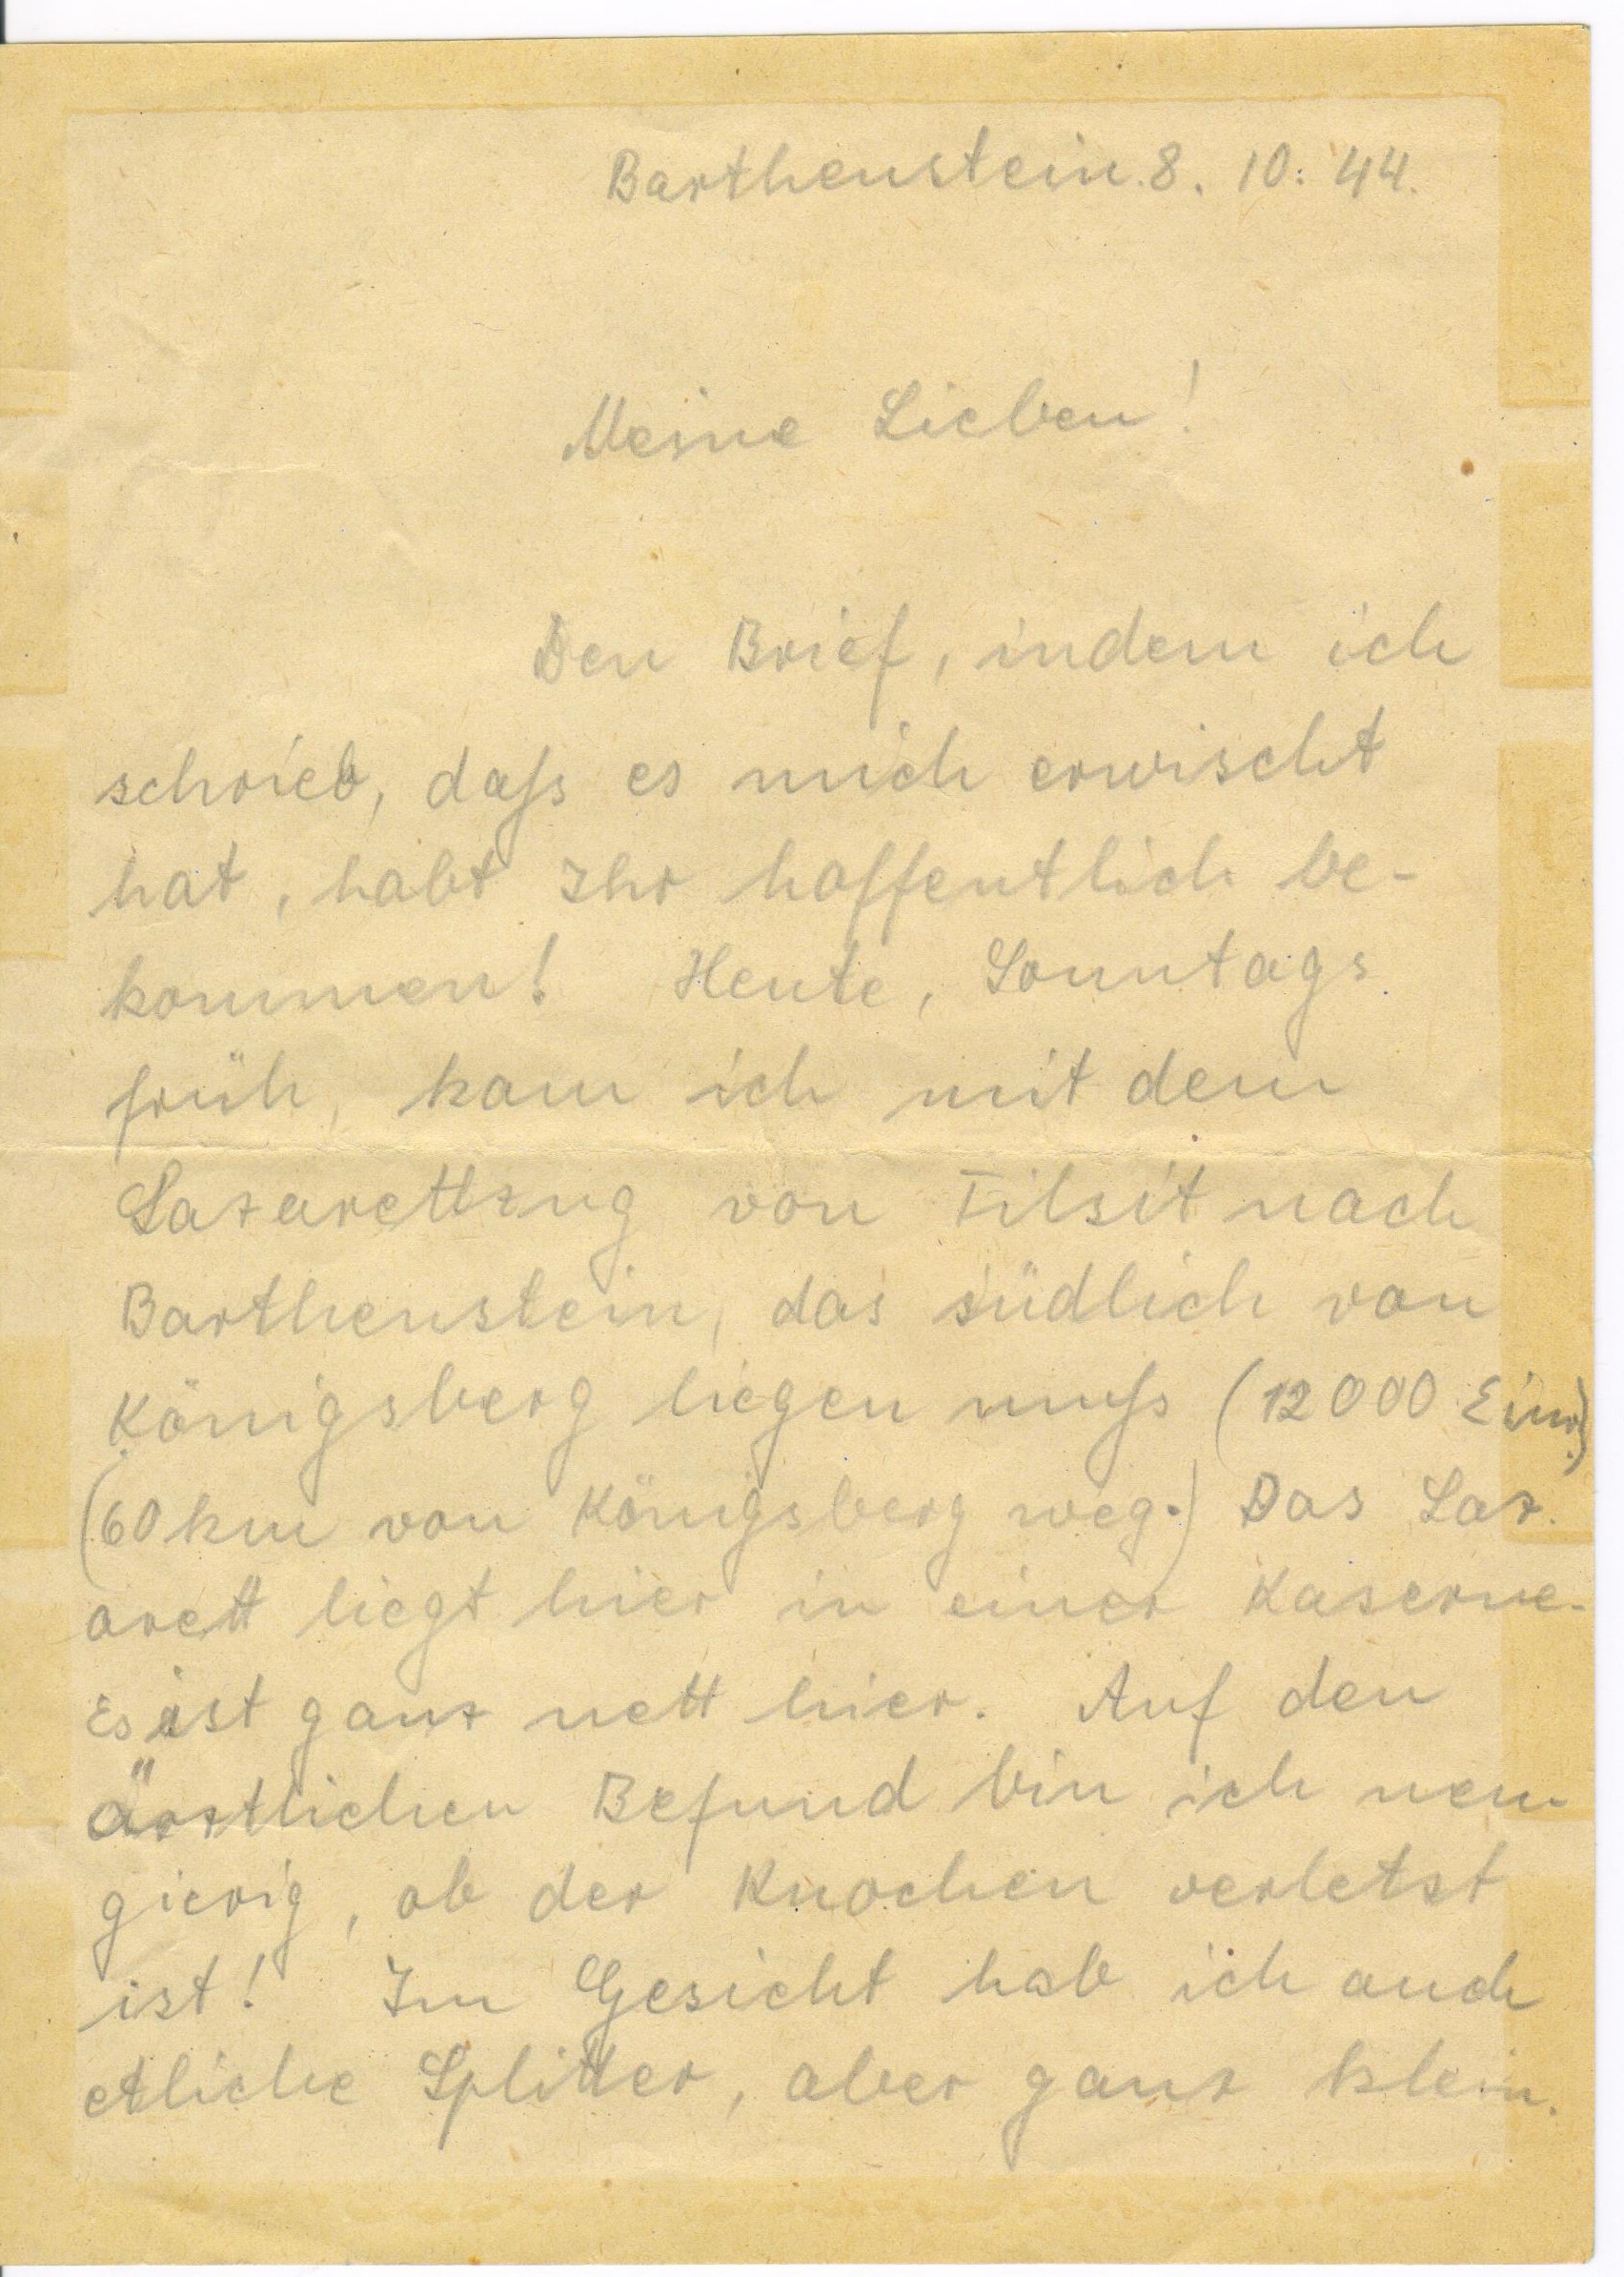 Barthenstein. 8. 10. 44.
Meine Lieben!
Den Brief, indem ich
schrieb, daß es mich erwischt
hat, habt Ihr hoffentlich be-
kommen! Heute, Sonntags
früh, kam ich mit dem
Lazarettzug von Tilsit nach
Barthenstein, das südlich von
Königsberg liegen muß (12000 Einw.)
(60 km von Königsberg weg.) Das Laz.
arett liegt hier in einer Kaserne.
Es ist ganz nett hier. Auf den
ärztlichen Befund bin ich neu-
gierig, ob der Knochen verletzt
ist! Im Gesicht hab ich auch
etliche Splitter, aber ganz klein.